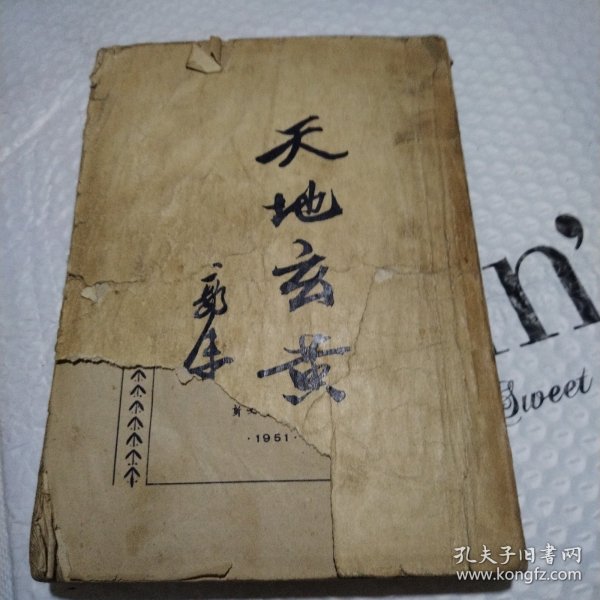 天地玄黄
郭沫
新文
·1951·
n'
Sweet
孔夫子旧書网
www.kongfz.com